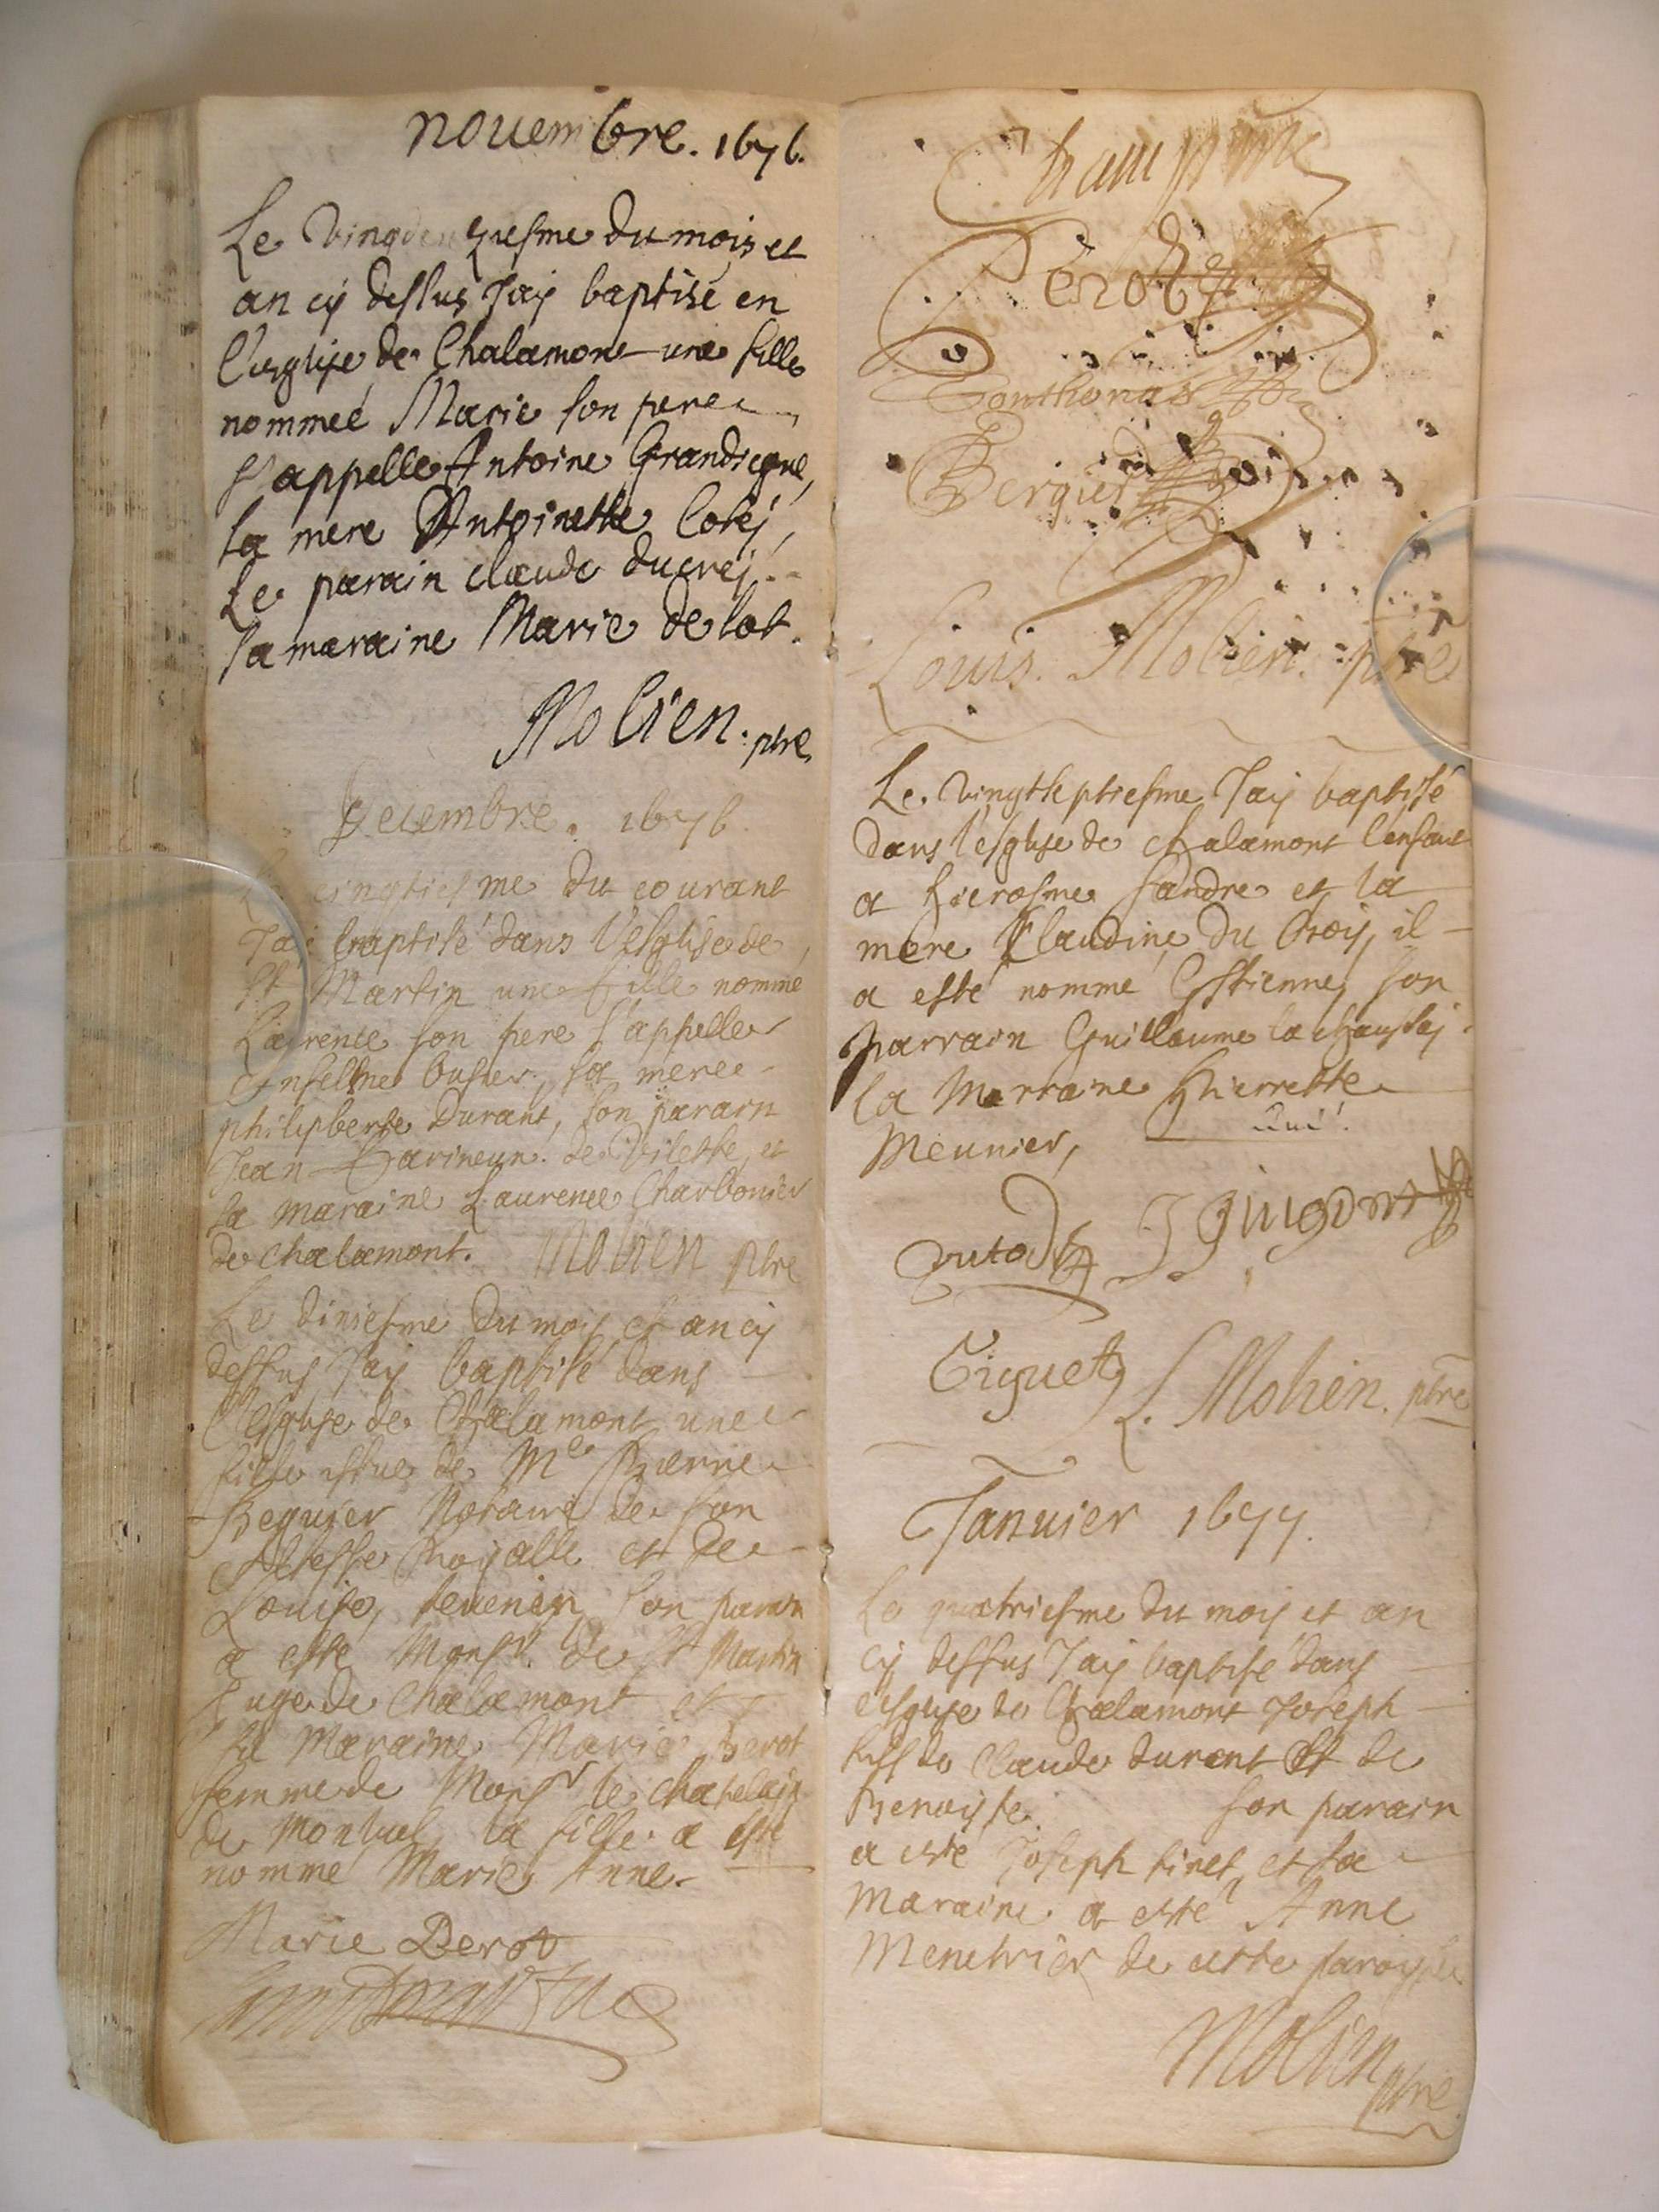 nouembre. 1676.
Le Vingdeuziesme du mois et
an cÿ dessus Jaÿ baptisé en
l'esglise de Chalamont une fille
nommeé Marie son pere
s'appelle Antoine
la mere Antoinette
Le parain claude ducreÿ
sa maraine Marie de lot.
Molien. ptre
Decembre. 1676.
Le cinqtiesme du courant
Jaÿ baptisé dans l'esglise de
St Martin une fille nommé
Laurence son pere s'appelle
sa mere
philipberte Durant, son parain
Jean de Vilette, et
sa maraine Laurence Charbonier
de chalamont. Molien ptre
Le dixiesme du mois et an cÿ
dessus Jaÿ baptisé dans
l'esglise de Chalamont une
fille issue de Me Pierre
Notaire de son
Altesse Royalle et de
Louise, son parain
a esté Monsr. de St Martin
Juge de Chalamont et
sa Maraine Marie Perot
femme de Monsr le chatelain
de Montluel, la fille a esté
nommé Marie Anne.
Marie Perot
Perot
Berguet
Louis. Molien. ptre
Le. Vingtseptiesme Jaÿ baptisé
dans l'esglise de chalamont l'enfant
a Hierosme Sandre et la
mere Claudine du Boÿs, il
a esté nommé Estienne, son
parrain Guillaume la chaussÿ
la Marraine Pierrette
Meunier,
L. Molien. ptre
Januier 1677.
Le quatriesme du mois et an
cÿ dessus Jaÿ baptisé dans
l'esglise de Chalamont Joseph
fils de Claude durant et de
Benoiste. son parain
a esté Joseph tinet, et sa
Maraine a esté Anne
Menetrier de cette paroysse
Molien ptre